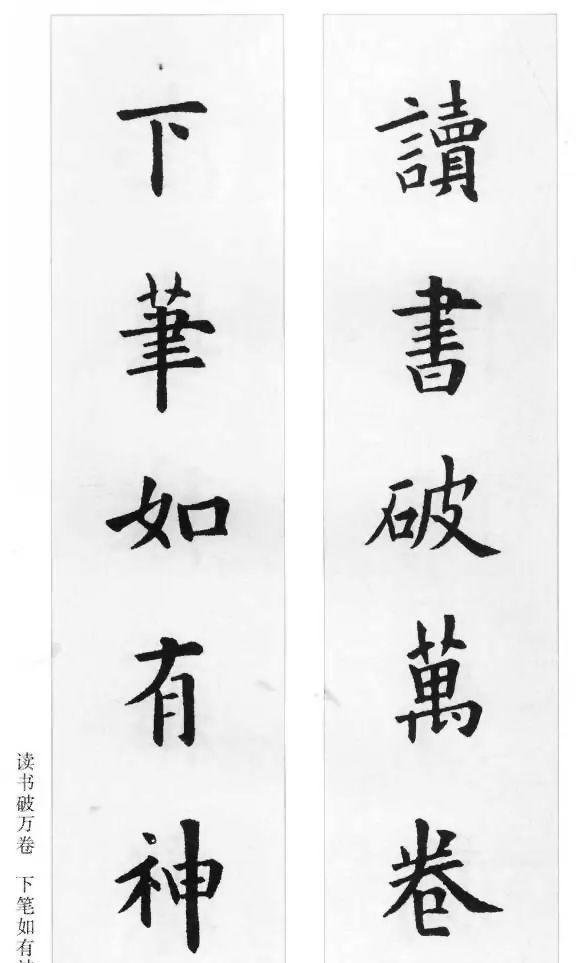 讀書破萬卷
下筆如有神
读书破万卷 下笔如有